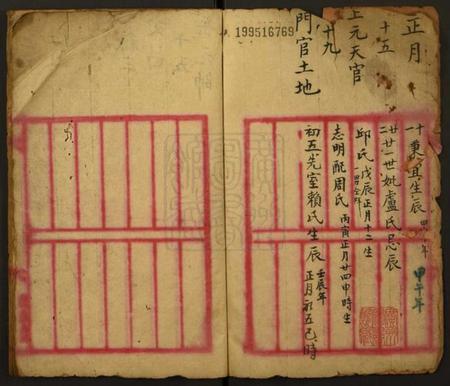 正月
十五
上元天官
十九
門官土地
199516769
十一秉宜生辰
甲午年
廿二廿一世妣盧氏忌辰
邱氏戊辰正月十二生
志明配周氏丙寅正月廿四申時生
初五先室賴氏生辰壬辰年
正月初五巳時